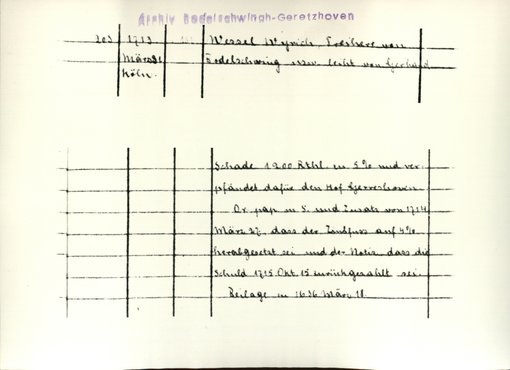 Archiv Bodelschwingh-Geretzhoven
203 1713 Wessel Wyrich Freiherr von
März 31 Bodelschwing usw. leiht von Gerhard
Köln.
Schade 1200 Rthl. zu 5% und ver-
pfändet dafür den Hof Gerreshoven
Or. pap. m. S. und Zusatz von 1714
März 27, dass der Zinsfuss auf 4%
herabgesetzt sei und der Notiz, dass die
Schuld 1715 Okt. 15 zurückgezahlt sei.
Beilage zu 1636 März 11.